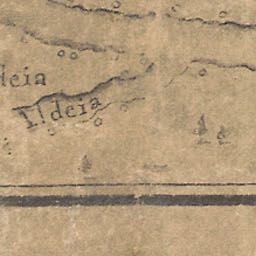 deia
I! deia